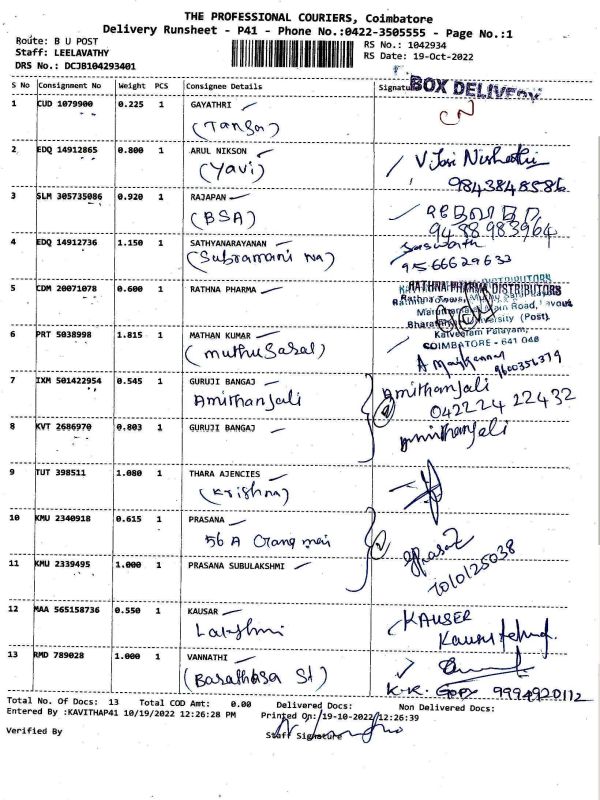 THE PROFESSIONAL COURIERS, Coimbatore
Delivery Runsheet - P41 - Phone No.:0422-3505555 - Page No.:1
Route: B U POST
Staff: LEELAVATHY
DRS No.: DCJB104293401
RS No.: 1042934
RS Date: 19-Oct-2022
S No Consignment No Weight PCS Consignee Details Signature
BOX DELIVERY
1 CUD 1079900 0.225 1 GAYATHRI
CN
2 EDQ 14912865 0.800 1 ARUL NIKSON
(Yavi)
3 SLM 305735086 0.920 1 RAJAPAN
(BSA)
9488983964
4 EDQ 14912736 1.150 1 SATHYANARAYANAN
(Subramani na)
9566629633
5 CDM 20071078 0.600 1 RATHNA PHARMA
RATHNA PHARMA DISTRIBUTORS
Main Road,
University (Post),
Kalveeram Palayam,
COIMBATORE - 641 046
6 PRT 5038998 1.815 1 MATHAN KUMAR
9600356379
7 IXM 501422954 0.545 1 GURUJI BANGAJ
Amithanjali
Amithanjali
04222422432
8 KVT 2686970 0.803 1 GURUJI BANGAJ
Amithanjali
9 TUT 398511 1.080 1 THARA AJENCIES
(Krishna)
10 KMU 2340918 0.615 1 PRASANA
56 A
2
7010125038
11 KMU 2339495 1.000 1 PRASANA SUBULAKSHMI
12 MAA 565158736 0.550 1 KAUSAR
Lakshmi
KAUSER
13 RMD 789028 1.000 1 VANNATHI
K.K. Gopi 9994920112
Total No. Of Docs: 13 Total COD Amt: 0.00 Delivered Docs: Non Delivered Docs:
Entered By :KAVITHAP41 10/19/2022 12:26:28 PM Printed On:/19-10-2022/12:26:39
Verified By Staff Signature